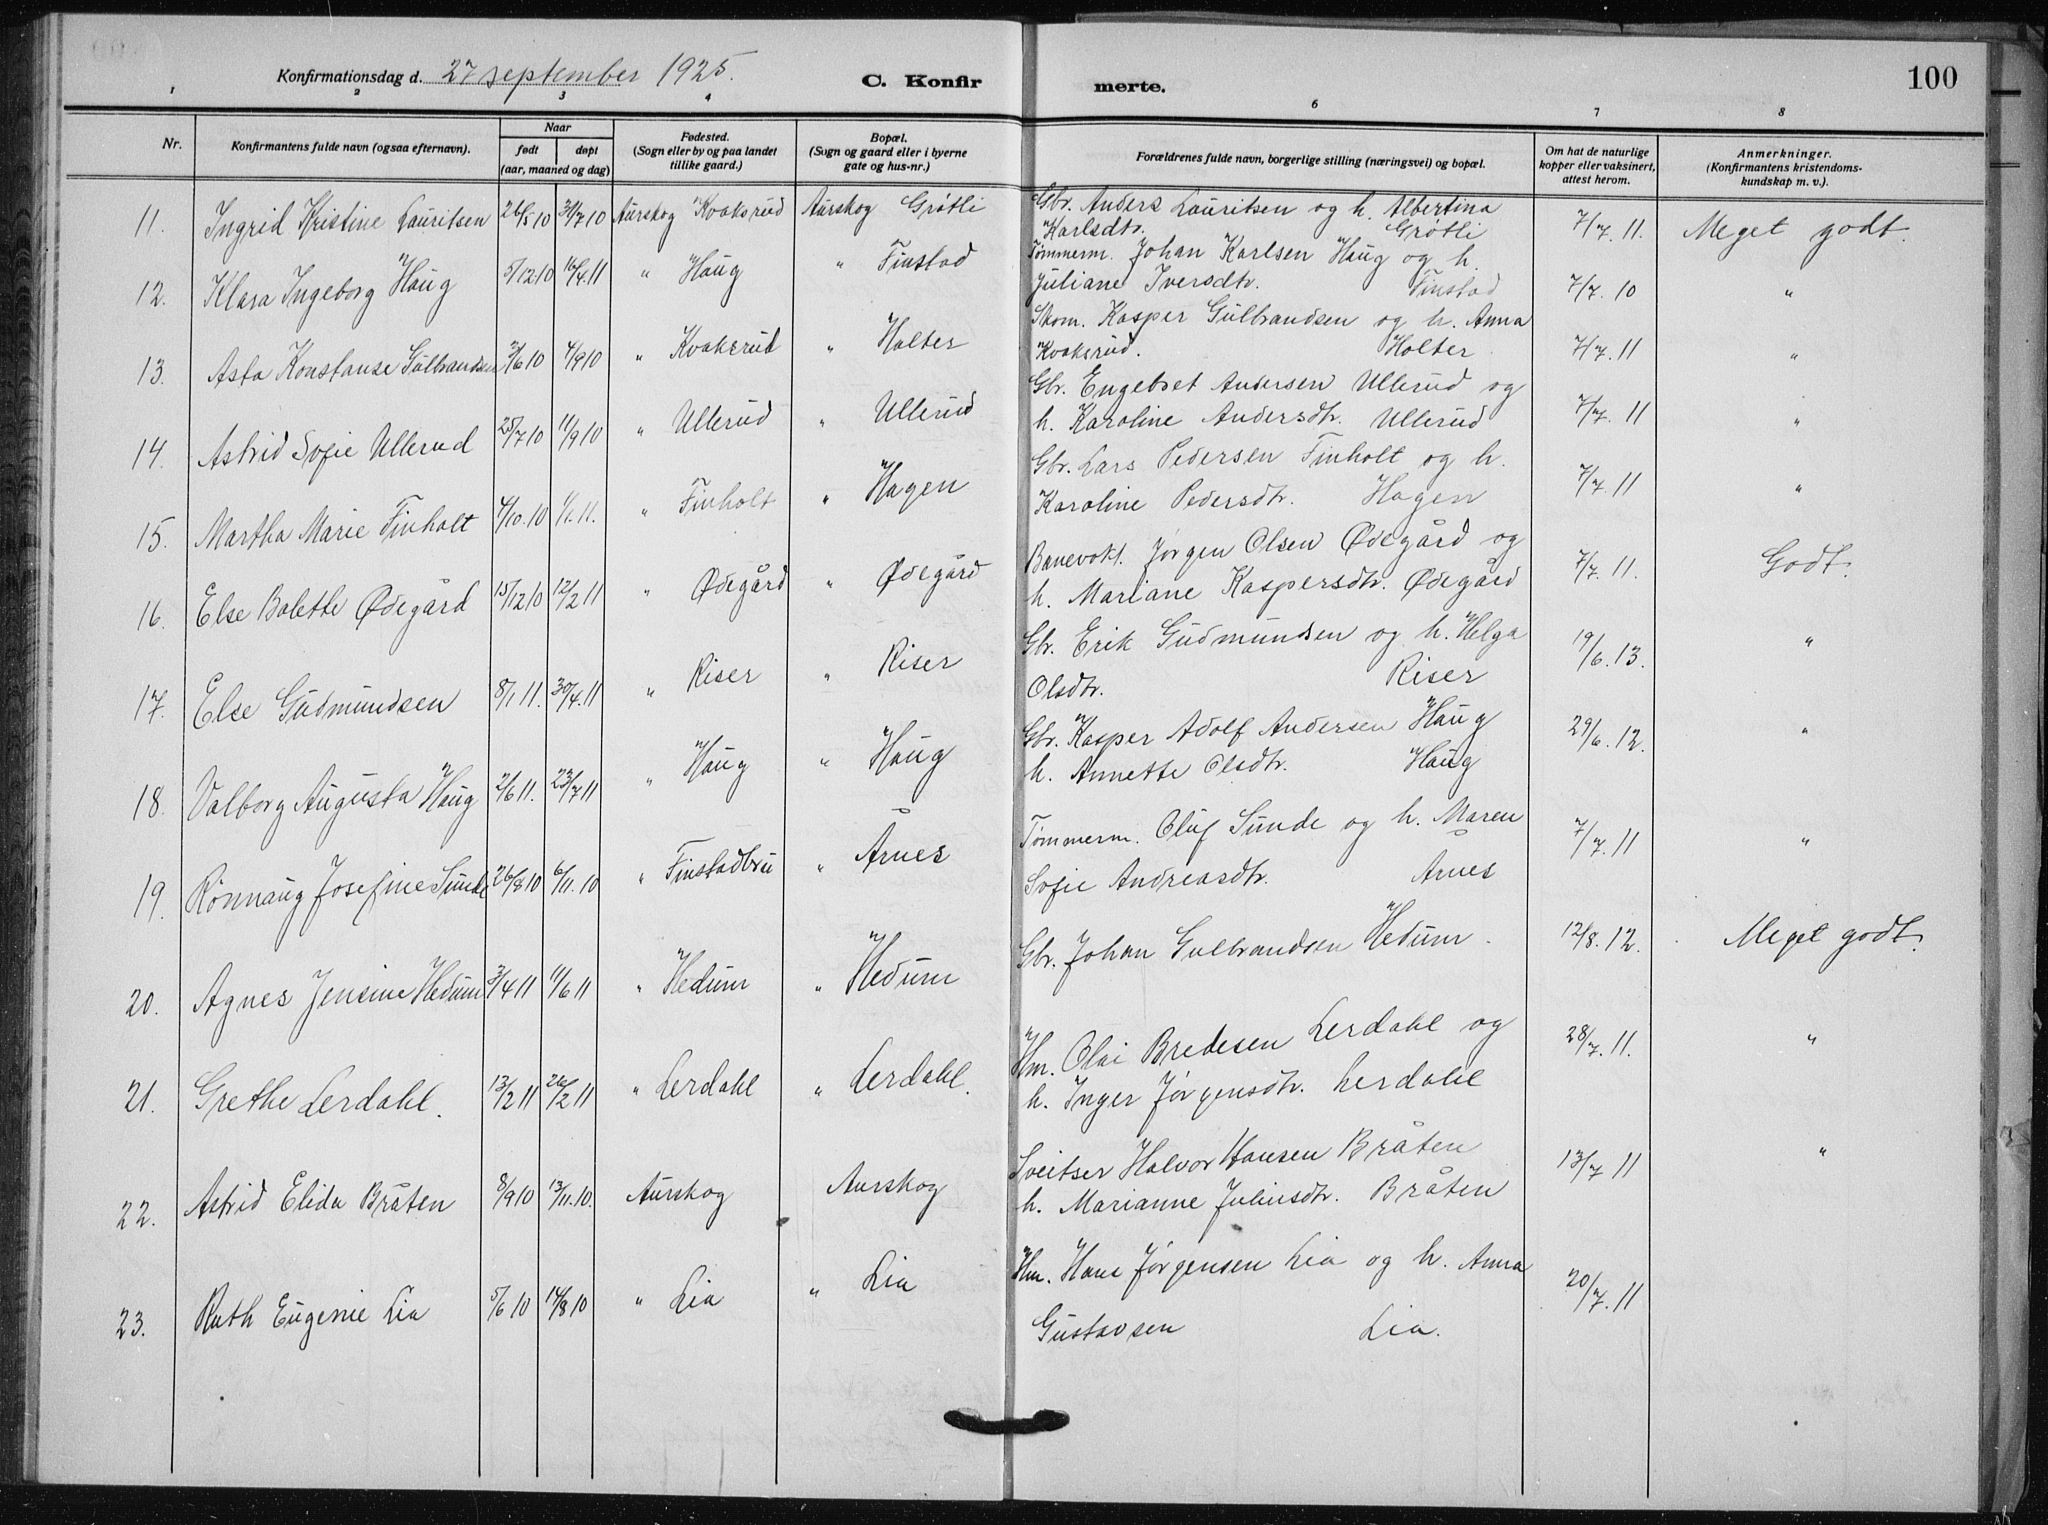 Konfirmationsdag d. 27 september 1925. C. Konfirmerte. 100
1 2 3 4 6 7 8
Nr. Konfirmantens fulde navn (ogsaa efternavn). Naar født døpt (aar, maaned og dag) Fødested. (Sogn eller by og paa landet tillike gaard.) Bopæl. (Sogn og gaard eller i byerne gate og hus-nr.) Forældrenes fulde navn, borgerlige stilling (næringsvei) og bopæl. Om hat de naturlige kopper eller vaksinert, attest herom. Anmerkninger. (Konfirmantens kristendomskundskap m. v.).
11. Ingrid Kristine Lauritsen 26/5 10 31/7 10 Aurskog Kvaksrud Aurskog Grøtli Gbr. Anders Lauritsen og h. Albertina
Karlsdtr. Grøtli 7/7. 11. Meget godt.
12. Klara Ingeborg Haug 5/12 10 16/4. 11 " Haug " Finstad Tømmerm. Johan Karlsen Haug og h.
Juliane Iversdtr. Finstad 7/7. 10 "
13. Asta Konstanse Gulbrandsen /6 10 4/9 10 " Kvaksrud " Holter Skom. Kasper Gulbrandsen og h. Anna
Kvaksrud. Holter 7/7. 11 "
14. Astrid Sofie Ullerud 25/7 10 11/9 10 " Ullerud " Ullerud Gbr. Engebret Andersen Ullerud og
h. Karoline Andersdtr. Ullerud 7/7. 11 "
15. Martha Marie Finholt 4/10. 10 1/1. 11. " Finholt " Hagen Gbr. Lars Pedersen Finholt og h.
Karoline Pedersdtr. Hagen 7/7. 11 "
16. Else Bolette Ødegård 15/12 10 12/2 11 " Ødegård " Ødegård Banevokt. Jørgen Olsen Ødegård og
h. Mariane Kaspersdtr. Ødegård 7/7. 11. Godt.
17. Else Gudmundsen 8/1 11. 30/4. 11 " Riser " Riser Gbr. Erik Gudmundsen og h. Helga
Olsdtr. Riser 19/6. 13. "
18. Valborg Augusta Haug 2/6 11. 23/7 11 " Haug " Haug Gbr. Kasper Adolf Andersen Haug
h. Annette Olsdtr. Haug 29/6. 12. "
19. Rönnaug Josefine Sunde 26/8 10 6/11. 10 " Finstadbru " Årnes Tømmerm. Oluf Sunde og h. Maren
Sofie Andreasdtr. Årnes 7/7. 11 "
20. Agnes Jensine Hedum 3/4 11 11/6 11 " Hedum " Hedum Gbr. Johan Gulbrandsen Hedum. 12/8. 12. Meget godt.
21. Grethe Lerdahl. 13/2 11 26/2 11 " Lerdahl " Lerdahl. Hm. Olai Bredesen Lerdahl og
h. Inger Jørgensdtr. Lerdahl 28/7. 11. "
22. Astrid Elida Bråten 8/9 10 13/11. 10. Aurskog Aurskog Sveitser Halvor Hansen Bråten
h. Marianne Juliusdtr. Bråten 13/7 11 "
23. Ruth Eugenie Lia 5/6 10 14/8 10 " Lia " Lia Hm. Hans Jørgensen Lia og h. Anna
Gustavsen Lia. 20/7. 11